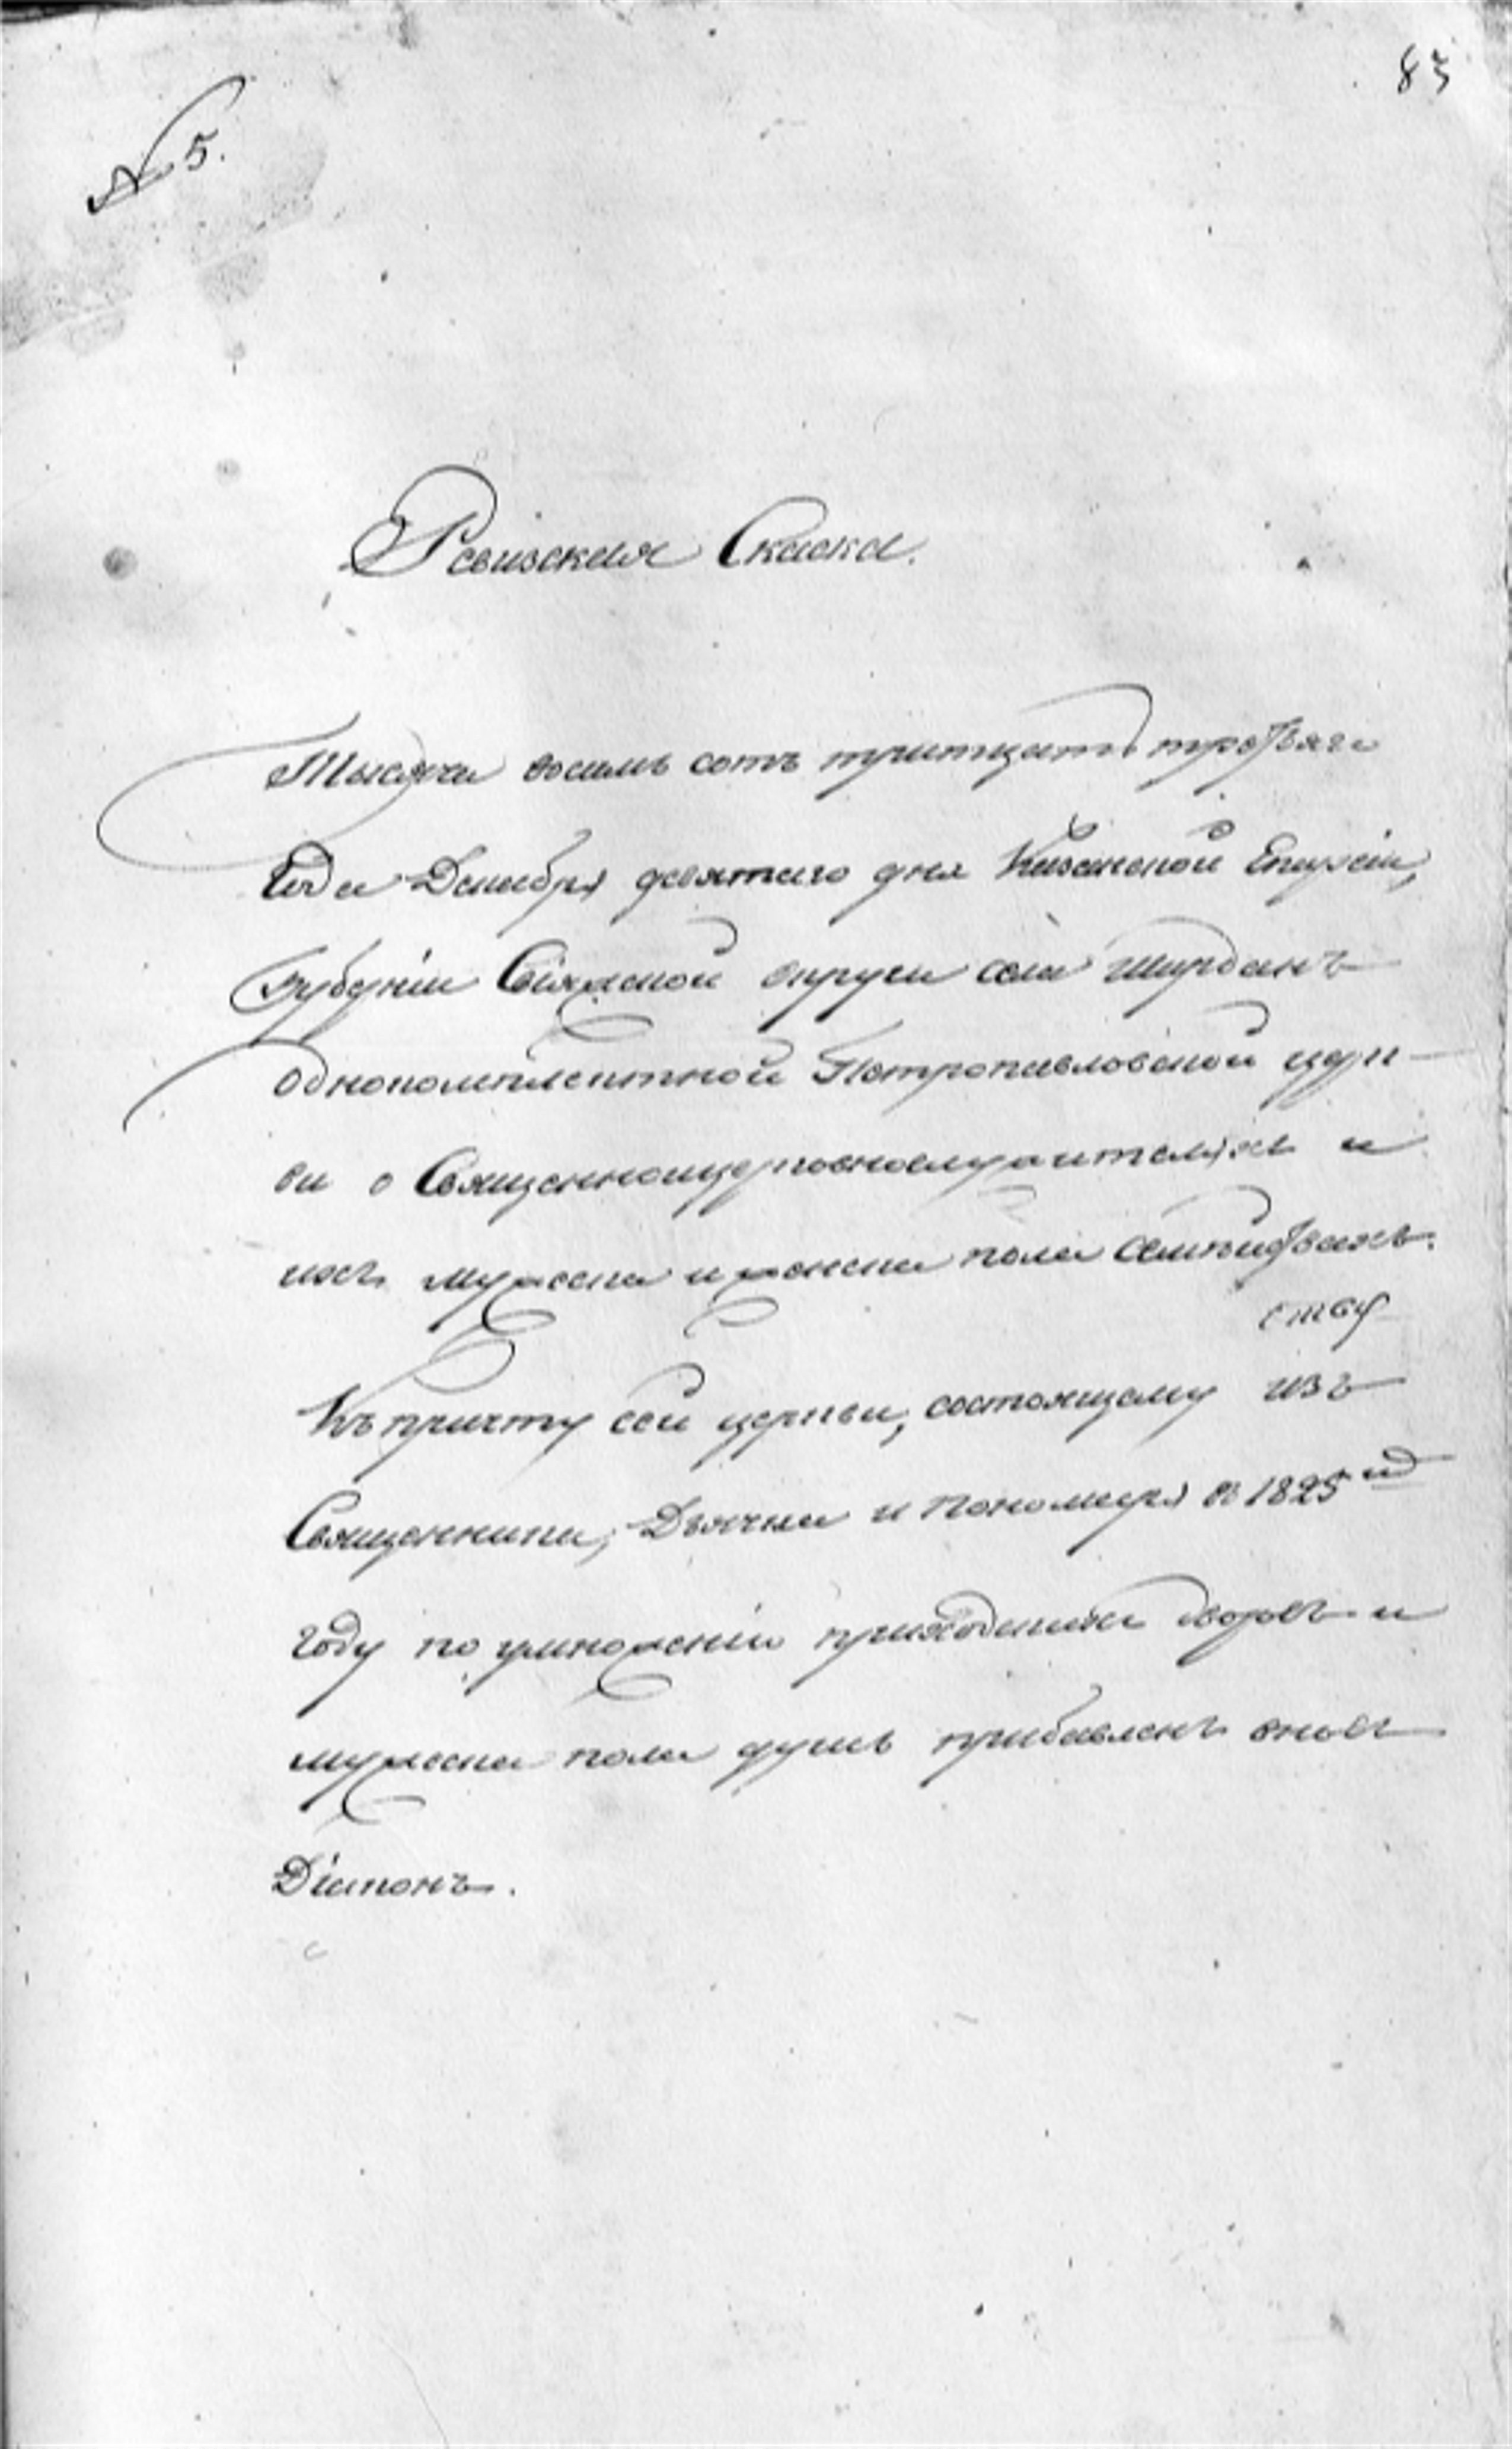 83
№ 5.
Ревизская Скаска.
Тысяча восемь сотъ тритцать третьяго
Года Декабря девятаго дня Казанской Епархіи,
Губерніи Свіяжской округи села Ширданъ
однокомплектной Петропавловской церк-
ви о Священноцерковнослужителяхъ и
ихъ мужеска и женска пола
Къ причту сей церкви, состоящему изъ
Священника, Дьячка и Пономаря въ 1825
году по умноженію приходскихъ дворовъ и
мужеска пола душъ прибавленъ
Діаконъ.